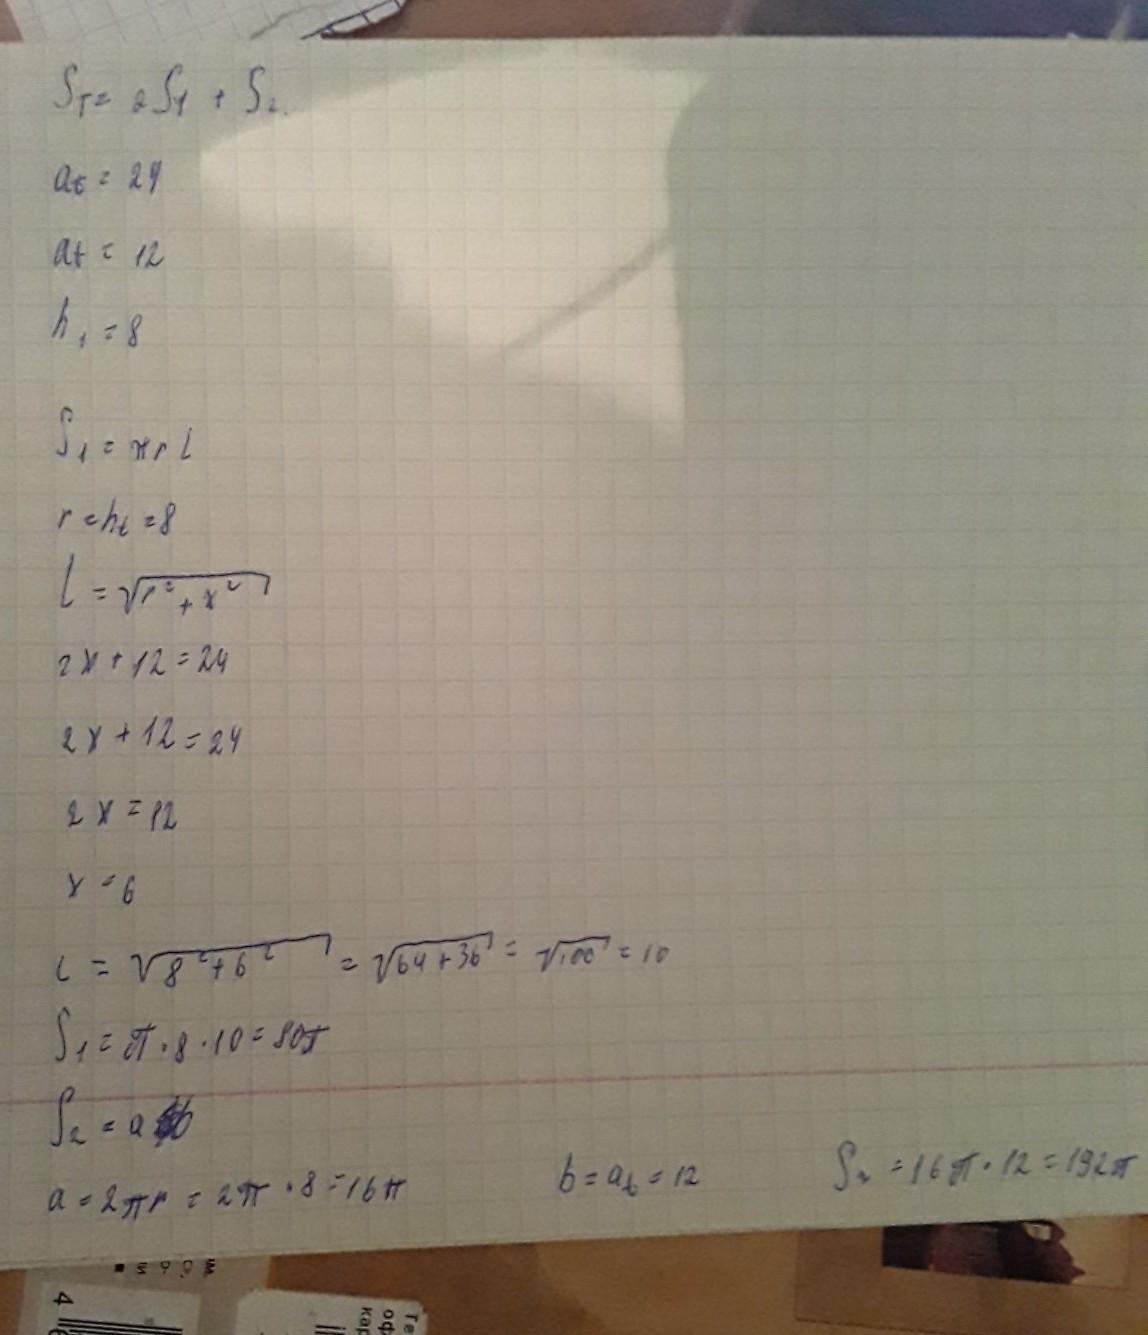 S_T = 2S_1 + S_2.
a_б = 24
a_t = 12
h_1 = 8
S_1 = πrl
r = h_t = 8
l = √(r² + x²)
2x + 12 = 24
2x + 12 = 24
2x = 12
x = 6
l = √(8² + 6²) = √(64 + 36) = √100 = 10
S_1 = π · 8 · 10 = 80π
S_2 = a b
a = 2πr = 2π · 8 = 16π b = a_б = 12 S_2 = 16π · 12 = 192π
4
Те
оф
кар